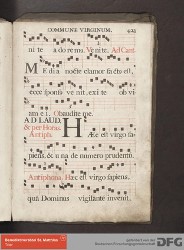 COMMUNE VIRGINUM.
ni te a do re mus. Ve nite. Ad Cant.
M E dia nocte clamor factus est,
ecce sponsus ve nit, exi te ob vi
am e i. Obaudite me.
AD LAUD.
& per Horas
Antiph. HAEc est virgo sa-
piens, & u na de numero prudentū.
Antiphona. HAEc est virgo sapiens,
quā Dominus vigilante invenit.
DFG